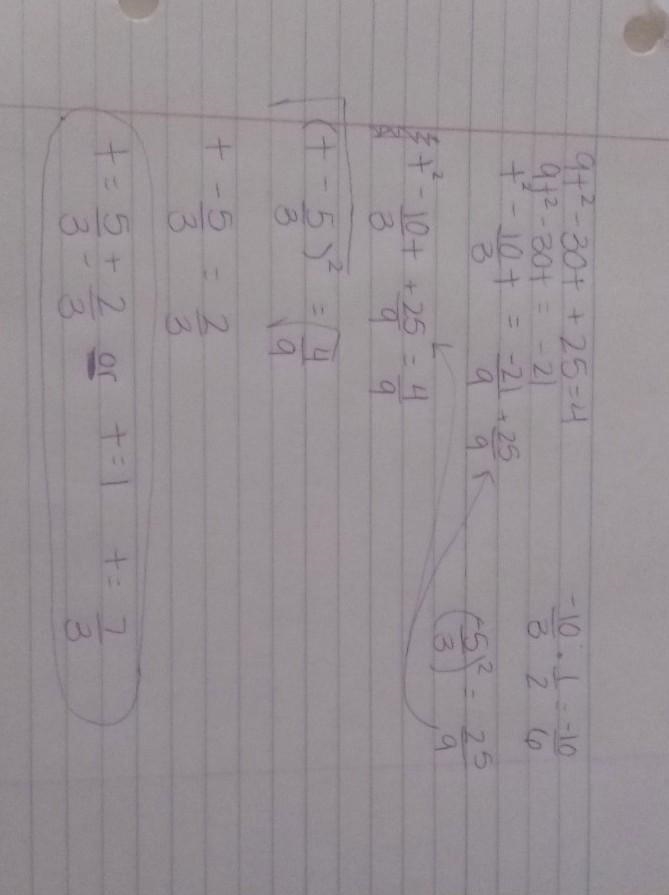 9t² - 30t + 25 = 4
9t² - 30t = -21
t² - 10/3 t = -21/9 + 25/9
t² - 10/3 t + 25/9 = 4/9
√(t - 5/3)² = √4/9
t - 5/3 = 2/3
t = 5/3 ± 2/3 or t = 1 t = 7/3
-10/3 · 1/2 = -10/6
(-5/3)² = 25/9